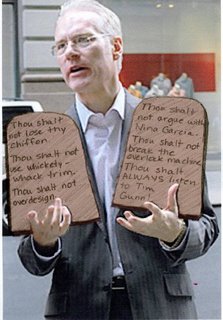 Thou shalt
not lose thy
chiffon.
Thou Shalt not
use whickety-
whack trim.
Thou Shalt not
overdesign.
Thou shalt
not argue with
Nina Garcia.
Thou Shalt not
break the
overlock machine.
Thou Shalt
ALWAYS listen
to Tim
Gunn!